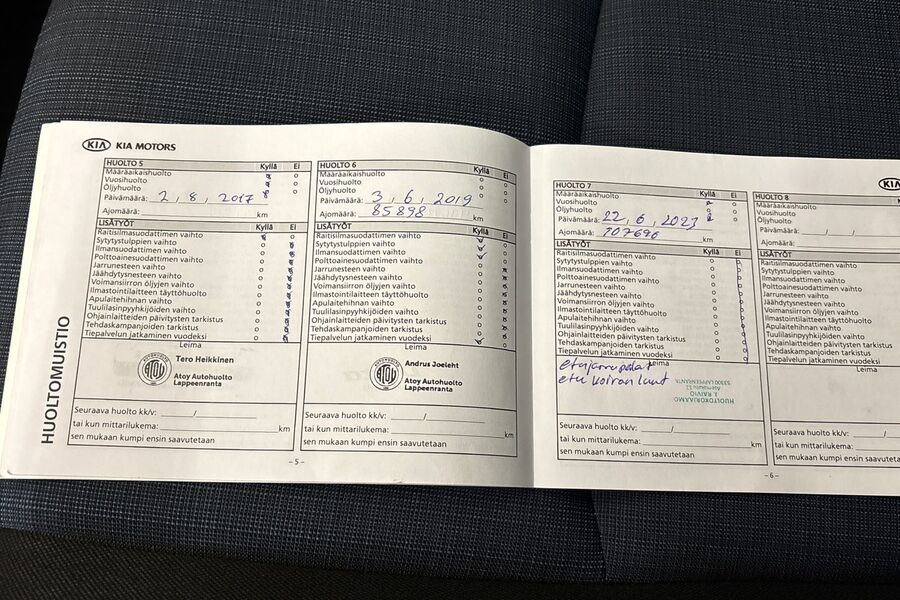 HUOLTOMUISTIO
KIA KIA MOTORS
HUOLTO 5 Kyllä Ei
Määräaikaishuolto
Vuosihuolto
Öljyhuolto
Päivämäärä: 2, 8, 2017
Ajomäärä: km
LISÄTYÖT Kyllä Ei
Raitisilmasuodattimen vaihto
Sytytystulppien vaihto
Ilmansuodattimen vaihto
Polttoainesuodattimen vaihto
Jarrunesteen vaihto
Jäähdytysnesteen vaihto
Voimansiirron öljyjen vaihto
Ilmastointilaitteen täyttöhuolto
Apulaitehihnan vaihto
Tuulilasinpyyhkijöiden vaihto
Ohjainlaitteiden päivitysten tarkistus
Tehdaskampanjoiden tarkistus
Tiepalvelun jatkaminen vuodeksi
Leima
Tero Heikkinen
ATOY
Atoy Autohuolto
Lappeenranta
Seuraava huolto kk/v: /
tai kun mittarilukema: km
sen mukaan kumpi ensin saavutetaan
HUOLTO 6 Kyllä Ei
Määräaikaishuolto
Vuosihuolto
Öljyhuolto
Päivämäärä: 3, 6, 2019
Ajomäärä: 85898 km
LISÄTYÖT Kyllä Ei
Raitisilmasuodattimen vaihto
Sytytystulppien vaihto
Ilmansuodattimen vaihto
Polttoainesuodattimen vaihto
Jarrunesteen vaihto
Jäähdytysnesteen vaihto
Voimansiirron öljyjen vaihto
Ilmastointilaitteen täyttöhuolto
Apulaitehihnan vaihto
Tuulilasinpyyhkijöiden vaihto
Ohjainlaitteiden päivitysten tarkistus
Tehdaskampanjoiden tarkistus
Tiepalvelun jatkaminen vuodeksi
Leima
Andrus Joeleht
ATOY
Atoy Autohuolto
Lappeenranta
Seuraava huolto kk/v: /
tai kun mittarilukema: km
sen mukaan kumpi ensin saavutetaan
- 5 -
HUOLTO 7 Kyllä Ei
Määräaikaishuolto
Vuosihuolto
Öljyhuolto
Päivämäärä: 22, 6, 2023
Ajomäärä: 107696 km
LISÄTYÖT Kyllä Ei
Raitisilmasuodattimen vaihto
Sytytystulppien vaihto
Ilmansuodattimen vaihto
Polttoainesuodattimen vaihto
Jarrunesteen vaihto
Jäähdytysnesteen vaihto
Voimansiirron öljyjen vaihto
Ilmastointilaitteen täyttöhuolto
Apulaitehihnan vaihto
Tuulilasinpyyhkijöiden vaihto
Ohjainlaitteiden päivitysten tarkistus
Tehdaskampanjoiden tarkistus
Tiepalvelun jatkaminen vuodeksi
Leima
etujarrupalat
etu koiran luut
HUOLTOKORJAAMO
X. RAIVIO
53300 LAPPEENRANTA
Seuraava huolto kk/v: /
tai kun mittarilukema: km
sen mukaan kumpi ensin saavutetaan
KIA
HUOLTO 8
Määräaikaishuolto
Vuosihuolto
Öljyhuolto
Päivämäärä: / /
Ajomäärä:
LISÄTYÖT
Raitisilmasuodattimen vaihto
Sytytystulppien vaihto
Ilmansuodattimen vaihto
Polttoainesuodattimen vaihto
Jarrunesteen vaihto
Jäähdytysnesteen vaihto
Voimansiirron öljyjen vaihto
Ilmastointilaitteen täyttöhuolto
Apulaitehihnan vaihto
Tuulilasinpyyhkijöiden vaihto
Ohjainlaitteiden päivitysten tarkistus
Tehdaskampanjoiden tarkistus
Tiepalvelun jatkaminen vuodeksi
Seuraava huolto kk/v: /
tai kun mittarilukema:
sen mukaan kumpi ensin saavutetaan
- 6 -